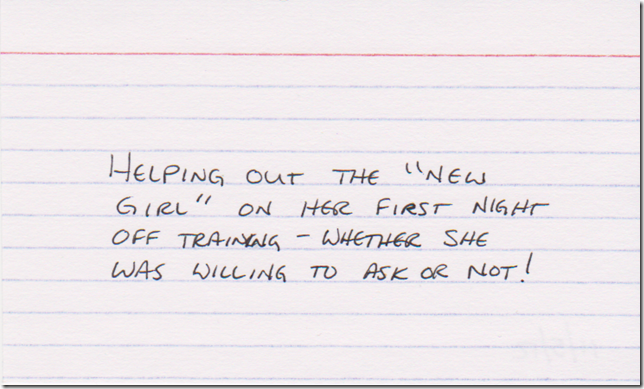 HELPING OUT THE "NEW
GIRL" ON HER FIRST NIGHT
OFF TRAINING - WHETHER SHE
WAS WILLING TO ASK OR NOT!